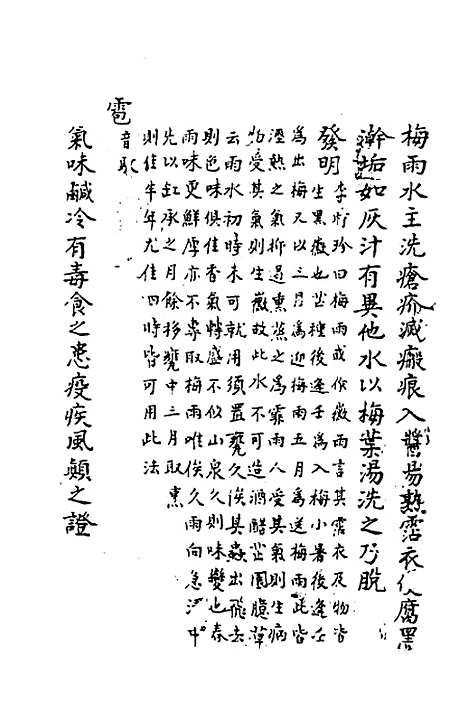 梅雨水主洗瘡疥滅瘢痕入醬易熟霑衣便腐黑
澣垢如灰汁有異他水以梅葉湯洗之乃脫
發明李時珍曰梅雨或作黴雨言其霑衣及物皆
生黑黴也芒種後逢壬為入梅小暑後逢壬
為出梅又以三月為迎梅雨五月為送梅雨此皆
溼熱之氣抑遏熏蒸之為霏雨人受其氣則生病
物受其氣則生黴故此水不可造酒醋芷園臆草
云雨水初時未可就用須置甕久俟具蟲出飛去
則色味俱佳香氣轉盛不似山泉久則味變也春
雨味更鮮厚亦不專取梅雨唯俟久雨向急流中
先以缸承之月餘移甕中三月取熏
則佳半年尤佳四時皆可用此法
雹音
氣味鹹冷有毒食之患疫疾風顛之證